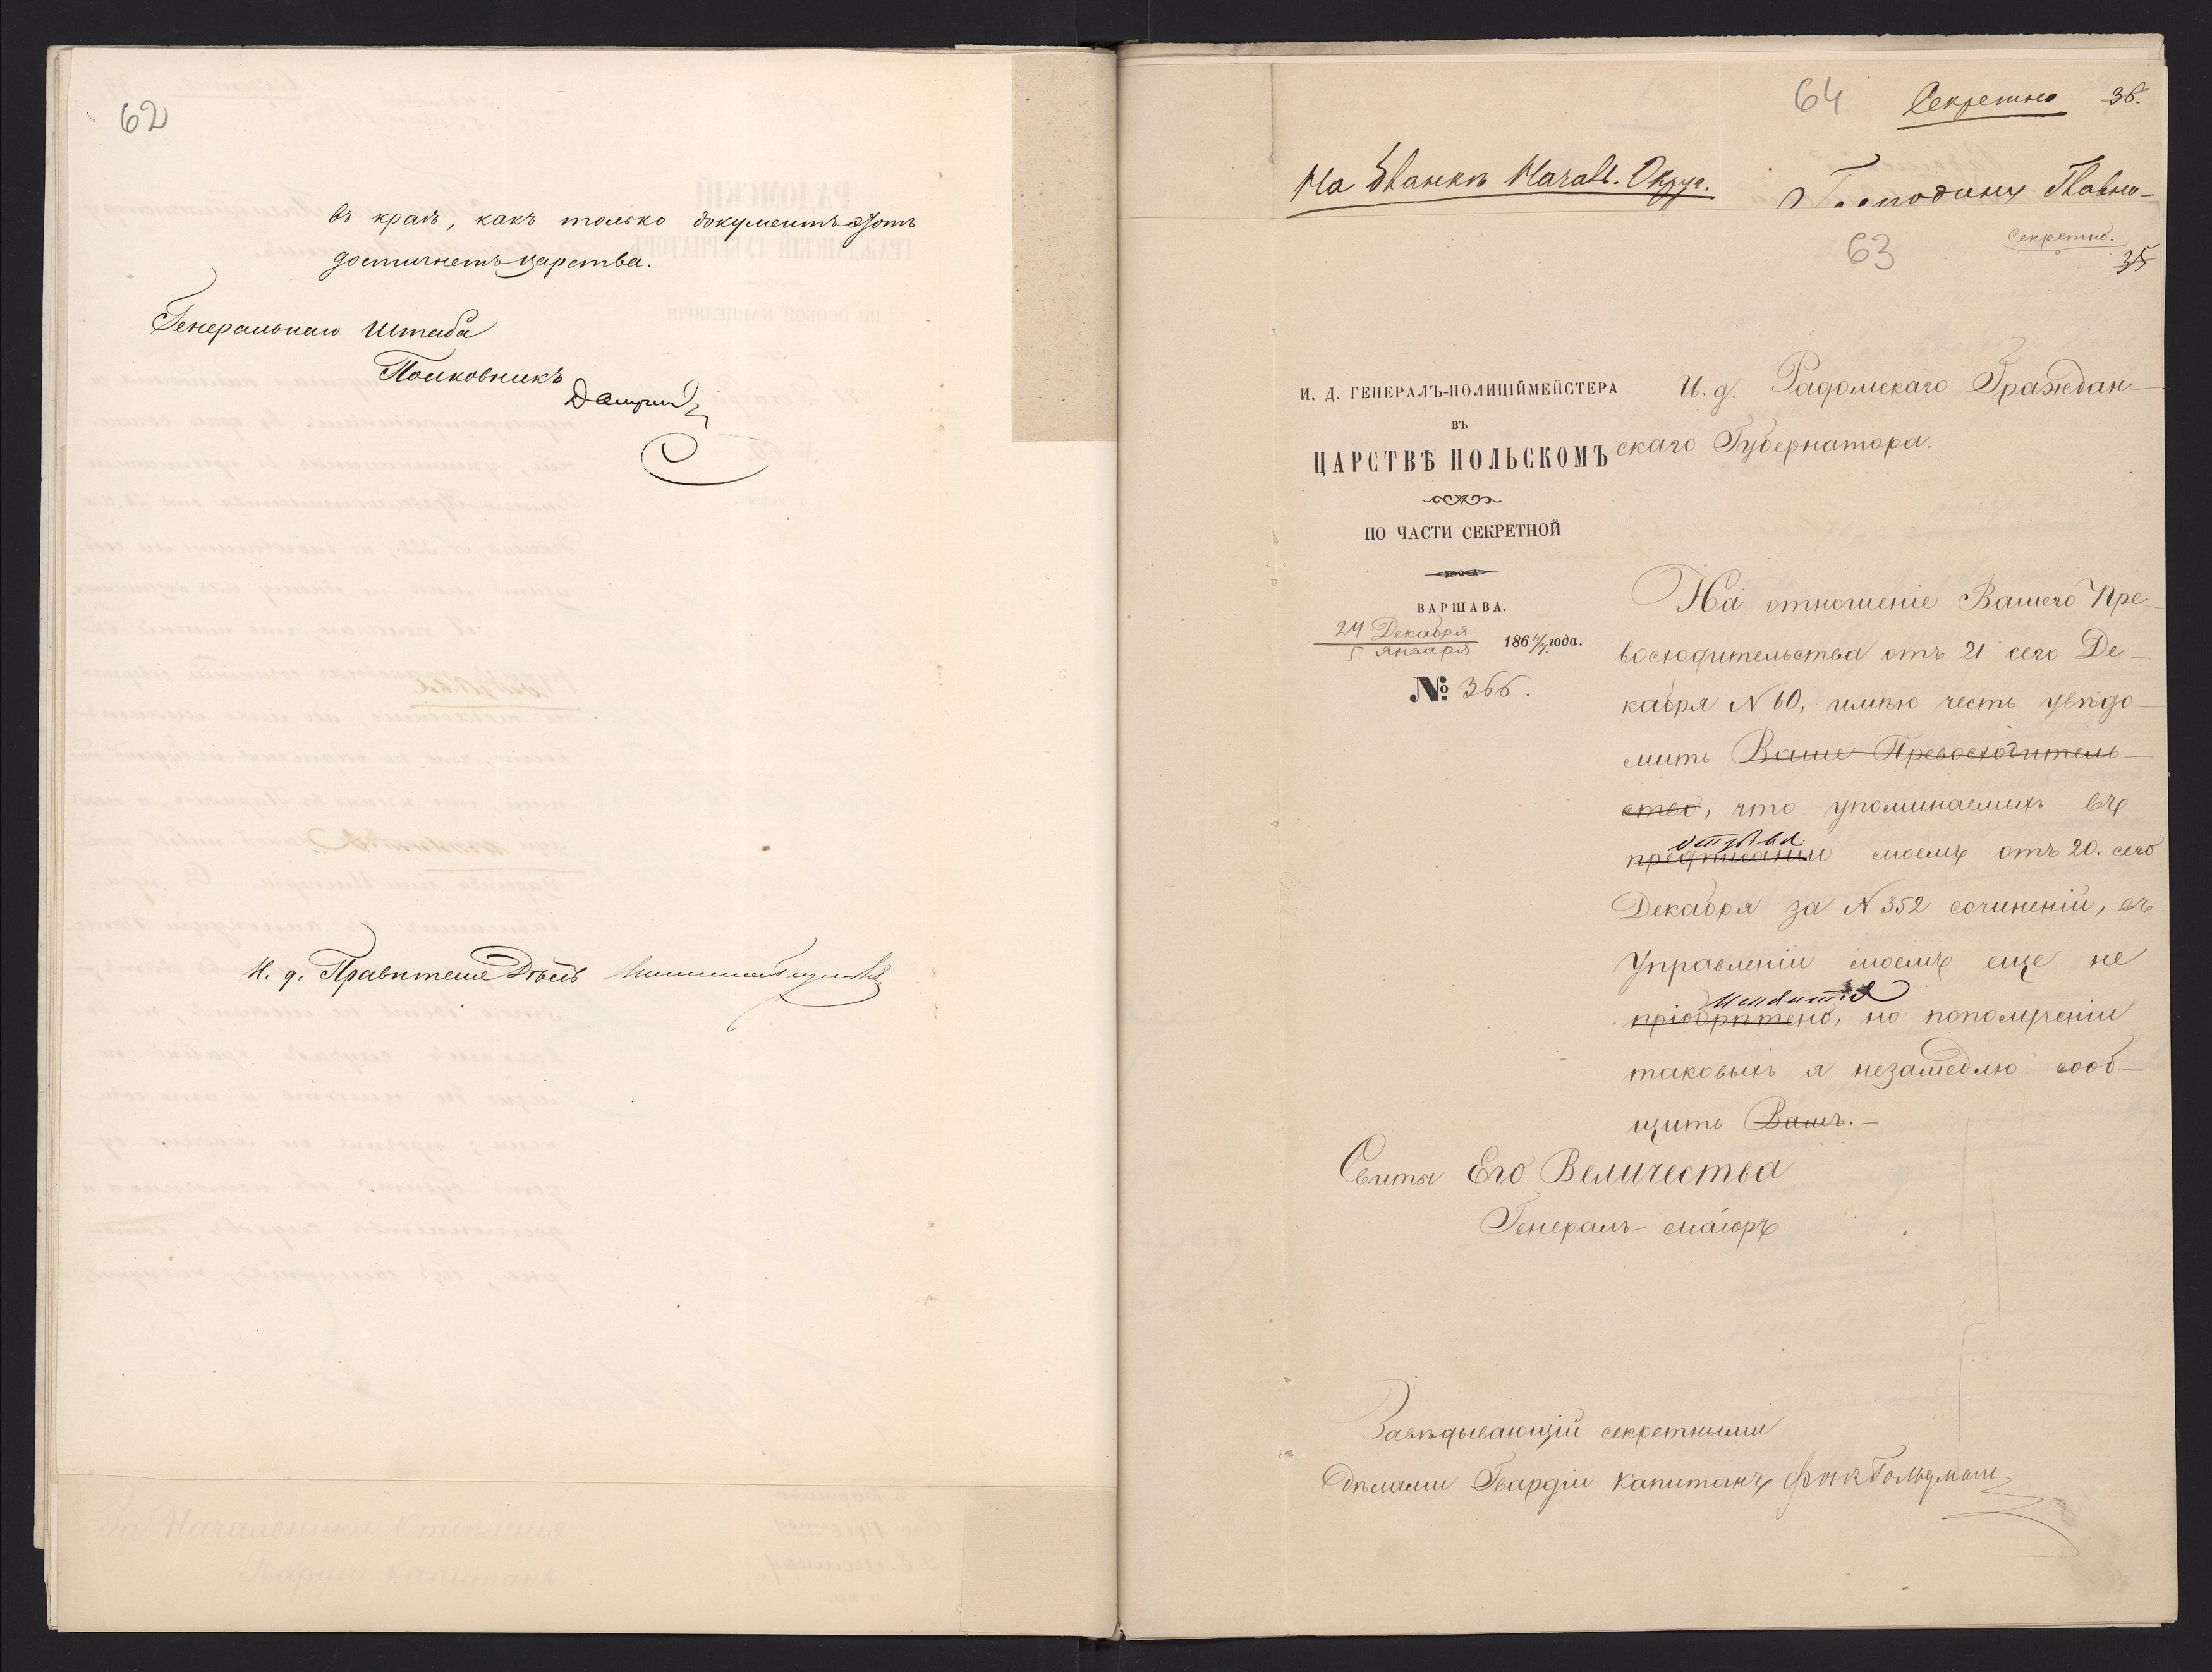 62
въ краѣ, какъ только документъ этотъ
достигнетъ царства.
Генеральнаго Штаба
Полковникъ
И. д. Правителя Дѣлъ
64 Секретно 36.
На бланкѣ Начал. Округ.
Господину Главно-
63 Секретно.
35
И. Д. ГЕНЕРАЛЪ-ПОЛИЦІЙМЕЙСТЕРА
ВЪ
ЦАРСТВѢ ПОЛЬСКОМЪ
ПО ЧАСТИ СЕКРЕТНОЙ
ВАРШАВА.
24 Декабря
5 Января 186 6/7 года.
№ 366.
И. д. Радомскаго Граждан-
скаго Губернатора.
На отношеніе Вашего Пре-
восходительства отъ 21 сего Де-
кабря N 60, имѣю честь увѣдо-
мить Ваше Превосходитель-
ство, что упоминаемыхъ въ
отзывѣ
предписаніи моемъ отъ 20. сего
Декабря за N 352 сочиненій, въ
Управленіи моемъ еще не
имѣется
пріобрѣтено, но по полученіи
таковыхъ я незамедлю сооб-
щить Вамъ.-
Свиты Его Величества
Генералъ-маіоръ
Завѣдывающій секретными
дѣлами Гвардіи Капитанъ